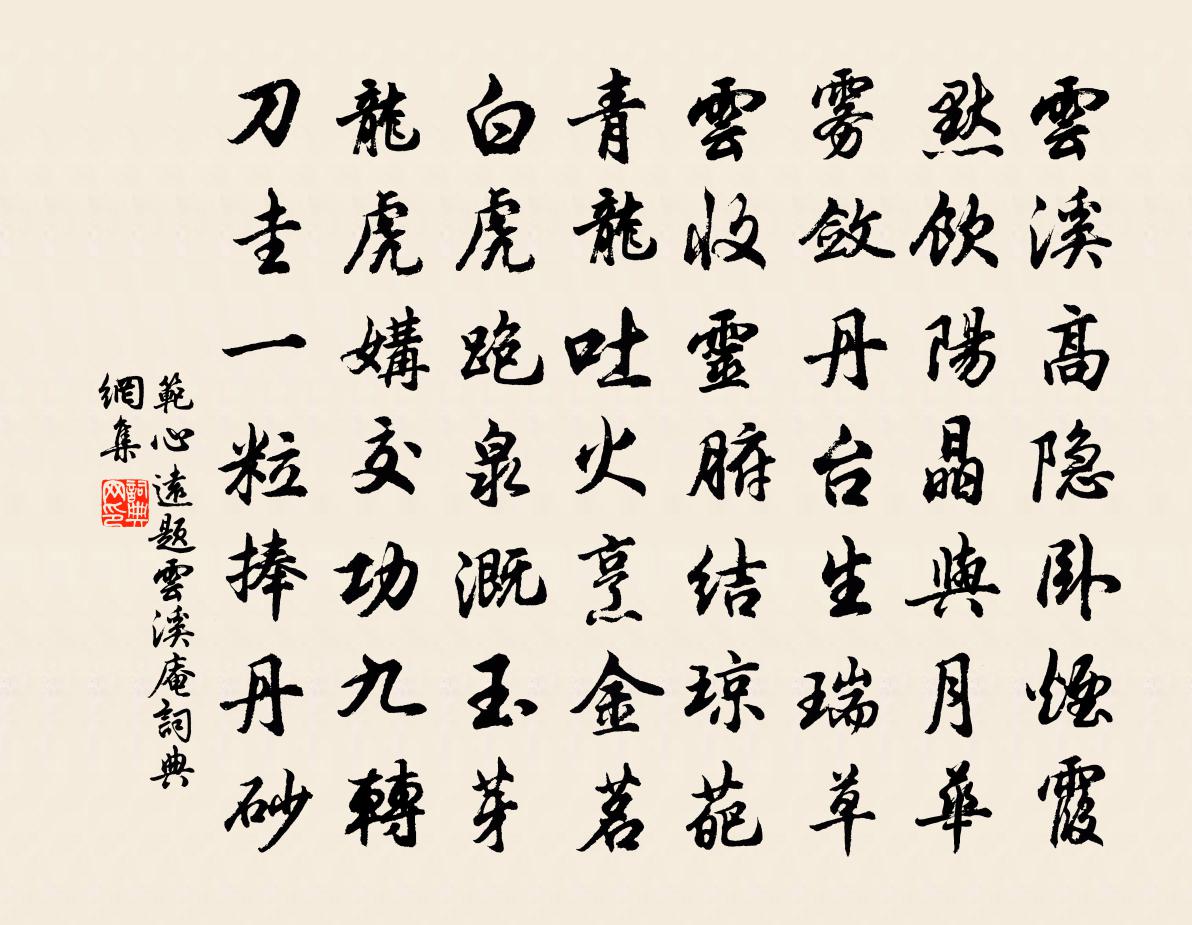 雲溪高隐卧煙霞
黙飲陽晶與月華
雾斂丹台生瑞草
雲收靈腑结琼葩
青龍吐火烹金茗
白虎跑泉溉玉芽
龍虎媾交功九轉
刀圭一粒捧丹砂
範心遠題雲溪庵詞典
網集
詞典
网印